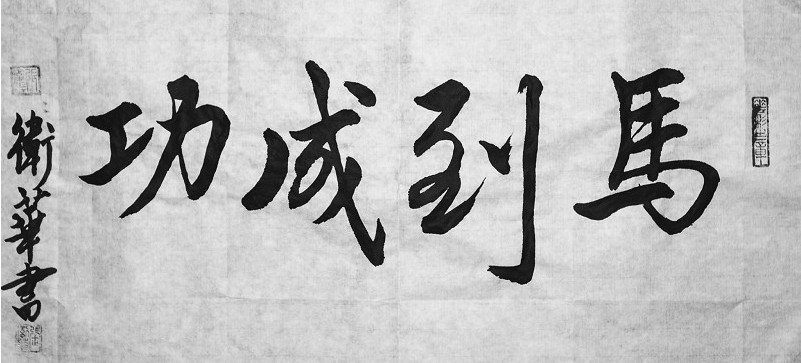 馬到成功
衛華書